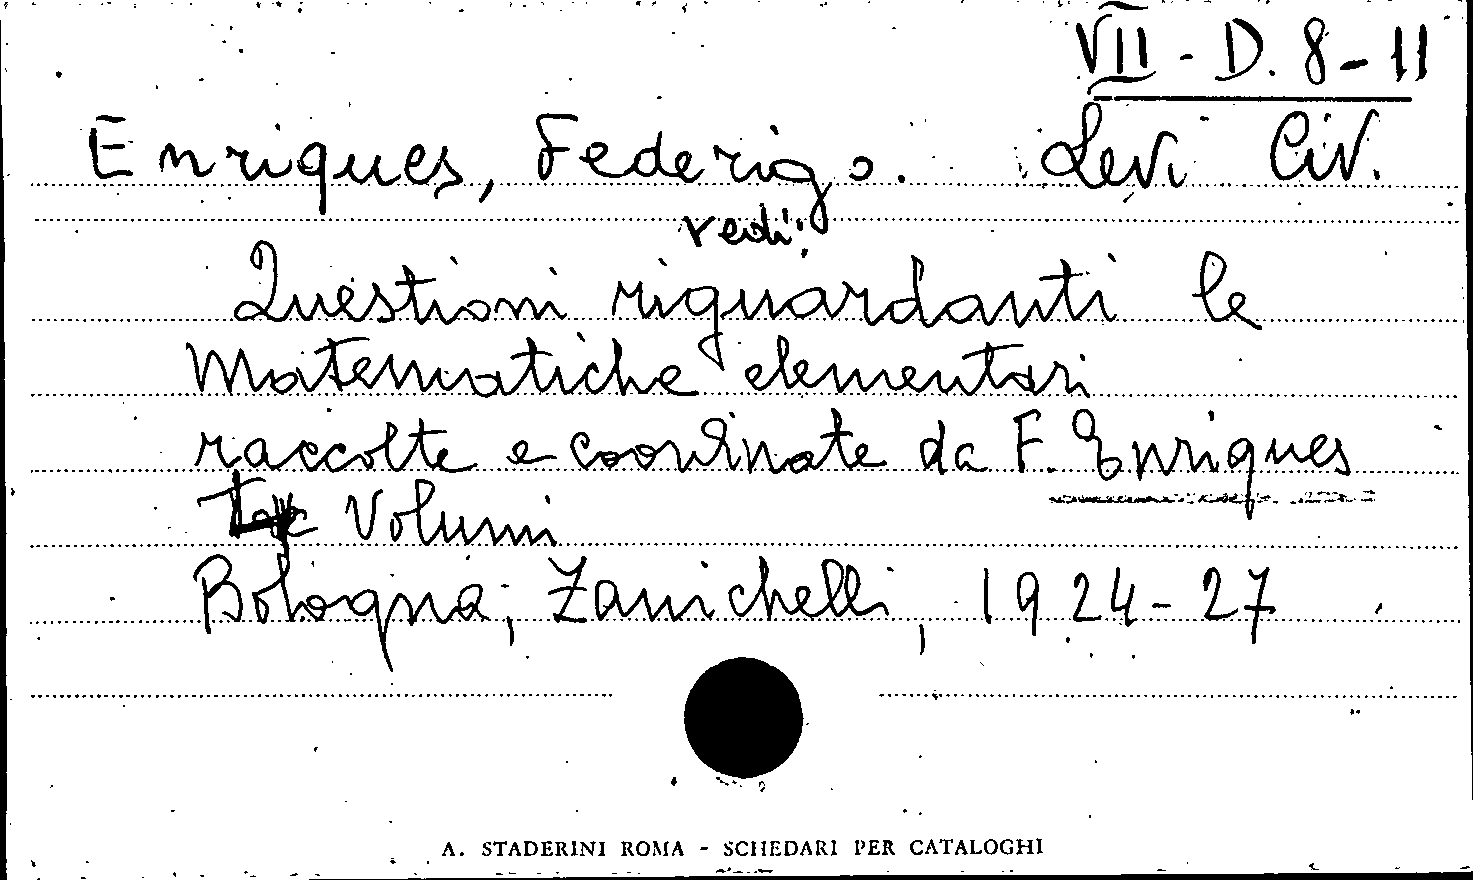 VII - D. 8-11
Enriques, Federigo. Levi Civ.
vedi:
Questioni riguardanti le
Matematiche elementari
raccolte e coordinate da F. Enriques
4 Volumi
Bologna, Zanichelli, 1924-27
A. STADERINI ROMA - SCHEDARI PER CATALOGHI